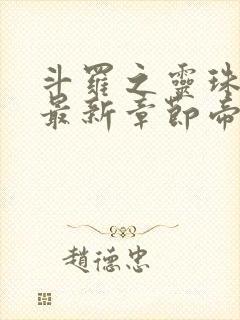 斗羅之靈珠
最新章節帝
趙德忠